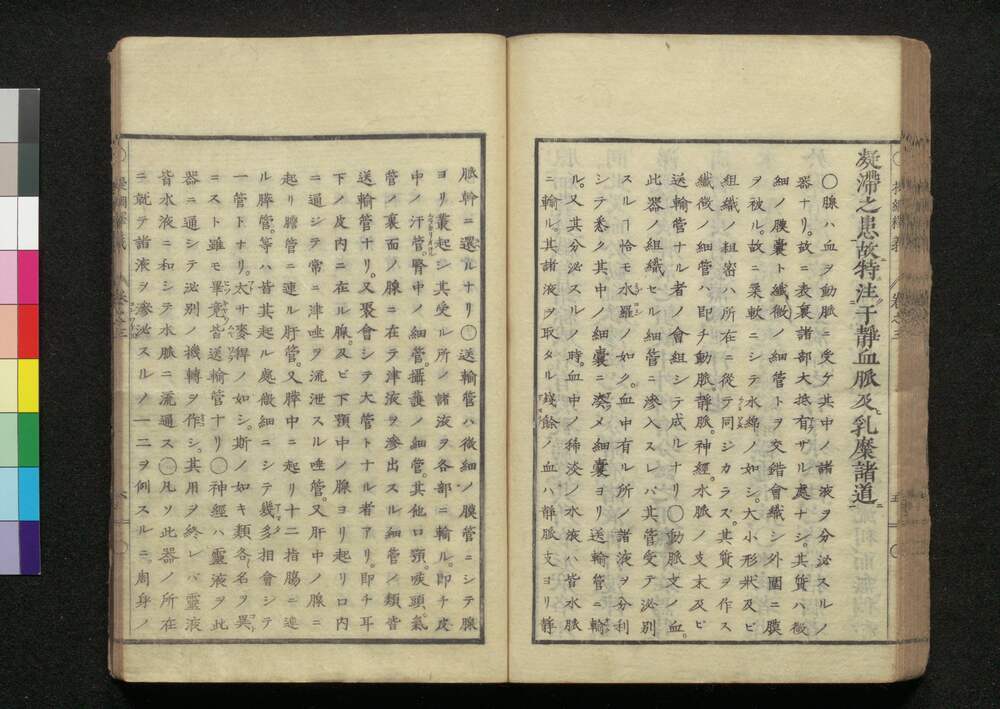 凝滯之患故特注于静血脈及乳糜諸道
〇腺ハ血ヲ動脈ニ受ケ其中ノ諸液ヲ分泌スルノ
器ナリ。故ニ表裏諸部大抵有ザル處ナシ。其質ハ微
細ノ膜嚢ト纎微ノ細管トヲ交錯會織シ外圍ニ膜
ヲ被ル。故ニ柔軟ニシテ水綿ノ如シ。大小形狀及ビ
組織ノ粗密ハ所在ニ從テ同ジカラズ。其質ヲ作ス
纎微ノ細管ハ即チ動脈。静脈。神經。水脈ノ支末及ビ
送輸管ナル者ノ會組シテ成ルナリ〇動脈支ノ血。
此器ノ組織セル細管ニ滲入スレバ其管受テ泌別
スルヿ恰モ水羅ノ如ク。血中有ル所ノ諸液ヲ分利
シテ悉ク其中ノ細嚢ニ湊メ細嚢ヨリ送輸管ニ輸
ル。又其分泌スルノ時。血中ノ稀淡ノ水液ハ皆水脈
ニ輸ル。其諸液ヲ取タル殘餘ノ血ハ静脈支ヨリ静
脈幹ニ還ルナリ〇送輸管ハ微細ノ膜管ニシテ腺
ヨリ叢起シ其受ル所ノ諸液ヲ各部ニ輸ル。即チ皮
中ノ汗管。腎中ノ細管。攝護ノ細管其他口頸。咳頭。氣
管ノ裏面ノ腺ニ在テ津液ヲ滲出スル細管ノ類皆
送輸管ナリ。又聚會シテ大管トナル者アリ。即チ耳
下ノ皮内ニ在ル腺。及ビ下頸中ノ腺ヨリ起リ口内
ニ通ジテ常ニ津唾ヲ流泄スル唾管。又肝中ノ腺ニ
起リ膽管ニ連ル肝管。又脺中ニ起リ十二指膓ニ連
ル脺管。等ハ皆其起ル處微細ニシテ幾多相會シテ
一管トナリ。太サ麥稈ノ如シ。斯ノ如キ類各名ヲ異
ニスト雖モ畢竟皆送輸管ナリ〇神經ハ靈液ヲ此
器ニ通シテ泌別ノ機轉ヲ作シ。其用ヲ終レバ靈液
皆水液ニ和シテ水脈ニ流通ス〇凡ソ此器ノ所在
ニ就テ諸液ヲ滲泌スルノ一二ヲ例スルニ。周身ノ